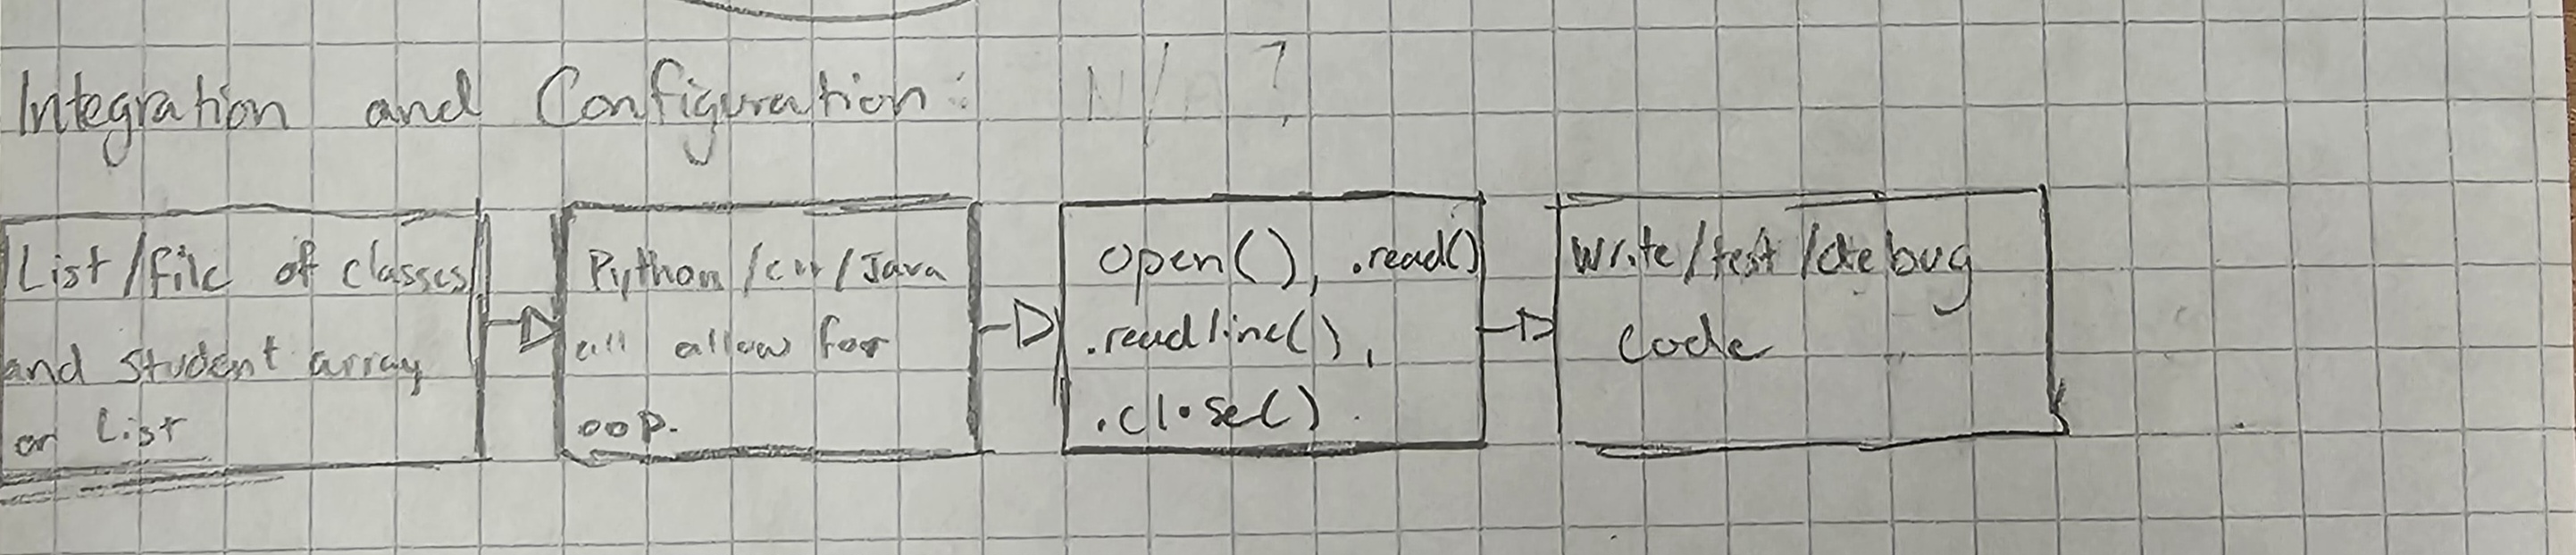 Integration and Configuration: N/A ?
List/file of classes
and student array
or List
Python/C++/Java
all allow for
OOP.
open(), .read()
.readline(),
.close().
Write/test/debug
Code